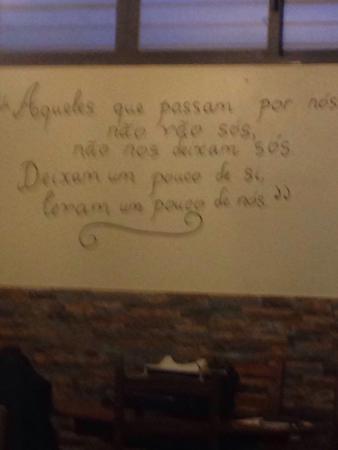 “Aqueles que passam por nós
não vão sós,
não nos deixam sós.
Deixam um pouco de si,
levam um pouco de nós ”